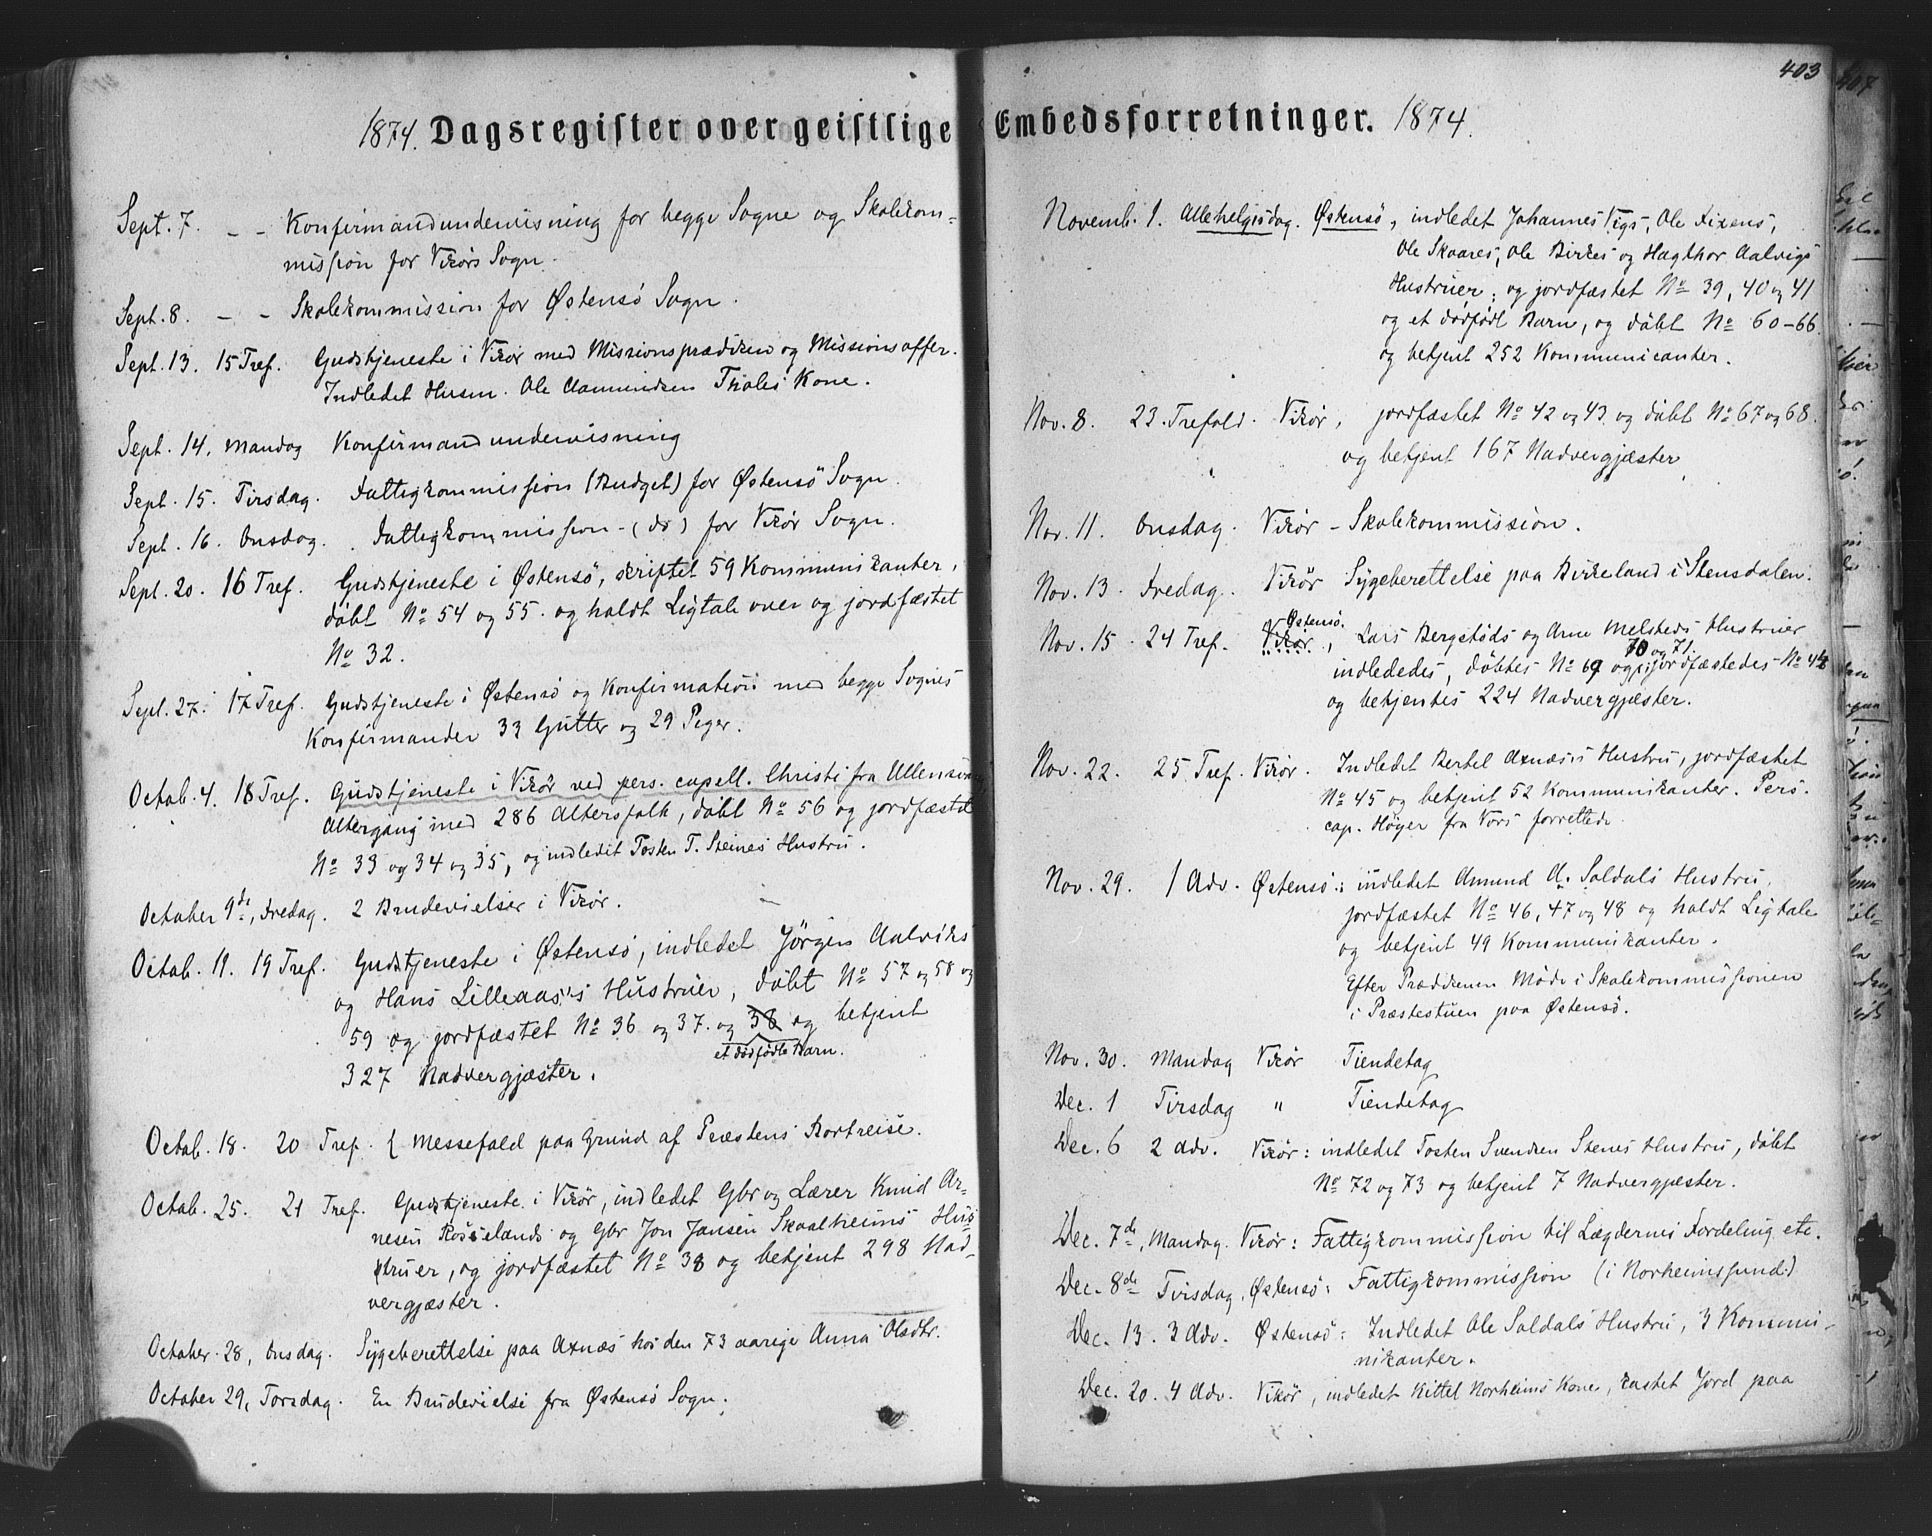 1874. Dagsregister over geistlige
Sept. 7. - - Konfirmandundervisning for begge Sogne og Skolekom=
mission for Vikørs Sogn.
Sept. 8. - - Skolekommission for Østensø Sogn.
Sept. 13. 15 Tref. Gudstjeneste i Vikør med Missionsprædiken og Missionsoffer.
Indledet Husm. Ole Aamundsen Kone.
Sept. 14. Mandag Konfirmandundervisning
Sept. 15. Tirsdag. Fattigkommission (Budget) for Østensö Sogn.
Sept. 16. Onsdag. Fattigkommission - (do) for Vikør Sogn.
Sept. 20. 16 Tref. Gudstjeneste i Østensø, skriftet 59 Kommunikanter,
döbt No 54 og 55. og holdt Ligtale over og jordfæstet
No 32.
Sept. 27. 17 Tref. Gudstjeneste i Østensø og Konfirmation med begge Sognes
Konfirmander 33 Gutter og 29 Piger.
Octob. 4. 18 Tref. Gudstjeneste i Vikør ved pers. capell. Christi fra Ullensvang
Altergang med 286 Altersfolk, døbt No 56 og jordfæstet
No 33 og 34 og 35, og indledet Tosten T. Steines Hustru.
October 9de, Fredag. 2 Brudevielser i Vikør.
Octob. 11. 19 Tref. Gudstjeneste i Østensø, indledet Jörgen Aalviks
og Hans Lilleaas's Hustruer, döbt No 57 og 58 og
59 og jordfæstet No 36 og 37. og 38 og betjent
et dødfødte Barn.
327 Nadvergjæster.
Octob. 18. 20 Tref. { Messefald paa Grund af Præstens Bortreise.
Octob. 25. 21 Tref. Gudstjeneste i Vikør, indledet Gbr og Lærer Knud Ar=
nesen Røsselands og Gbr Jon Jansen Skaalheims Hus
struer, og jordfæstet No 38 og betjent 298 Nad-
vergjæster.
October 28, Onsdag. Sygeberettelse paa Axnæs hos den 73 aarige Anna Olsdtr.
October 29, Torsdag. En Brudevielse fra Østensø Sogn.
403
Embedsforretninger. 1874.
Novemb. 1. Allehelgisdag. Østensø, indledet Johannes Ole Fixens,
Ole Skaares, Ole Birkes og Hagthor Aalvigs
Hustruer; og jordfæstet No 39, 40 og 41
og et dødfødt Barn, og døbt No 60-66
og betjent 252 Kommunicanter.
Nov. 8. 23. Trefold. Vikør, jordfæstet No 42 og 43 og døbt No 67 og 68.
og betjent 167 Nadvergjæster
Nov. 11. Onsdag. Vikør - Skolekommission.
Nov. 13. Fredag. Vikør Sygeberettelse paa Birkeland i Stensdalen.
Østensø.
Nov. 15. 24 Tref. Vikør, Lars Bergstøds og Arne Melsteds Hustruer
70 og 71.
indlededes, døbtes No 69 og jordfæstedes No 44
og betjentes 224 Nadvergjæster.
Nov. 22. 25 Tref. Vikør. Indledet Bertel Axnæs's Hustru, jordfæstet
No 45 og betjent 52 Kommunikanter. Pers.
cap. Høyer fra Vors forrettede
Nov. 29. 1 Adv. Østensø: indledet Amund A. Soldals Hustru,
jordfæstet No 46, 47 og 48 og holdt Ligtale
og betjent 49 Kommunikanter.
Efter Prædikenen Møde i Skolekommissionen
i Præstestuen paa Østensø.
Nov. 30. Mandag Vikør Tiendetag
Dec. 1 Tirsdag " Tiendetag
Dec. 6 2 Adv. Vikør: indledet Tosten Svendsen Stenes Hustru, døbt
No 72 og 73 og betjent 7 Nadvergjæster.
Dec. 7de, Mandag. Vikør: Fattigkommission til Lægdernes Fordeling etc.
Dec. 8de Tirsdag, Østensø: Fattigkommission (i Norheimssund)
Dec. 13. 3 Adv. Østensø: Indledet Ole Soldals Hustru, 3 Kommu-
nikanter.
Dec. 20. 4 Adv. Vikør, indledet Kittel Norheims Kone, kastet Jord paa
407